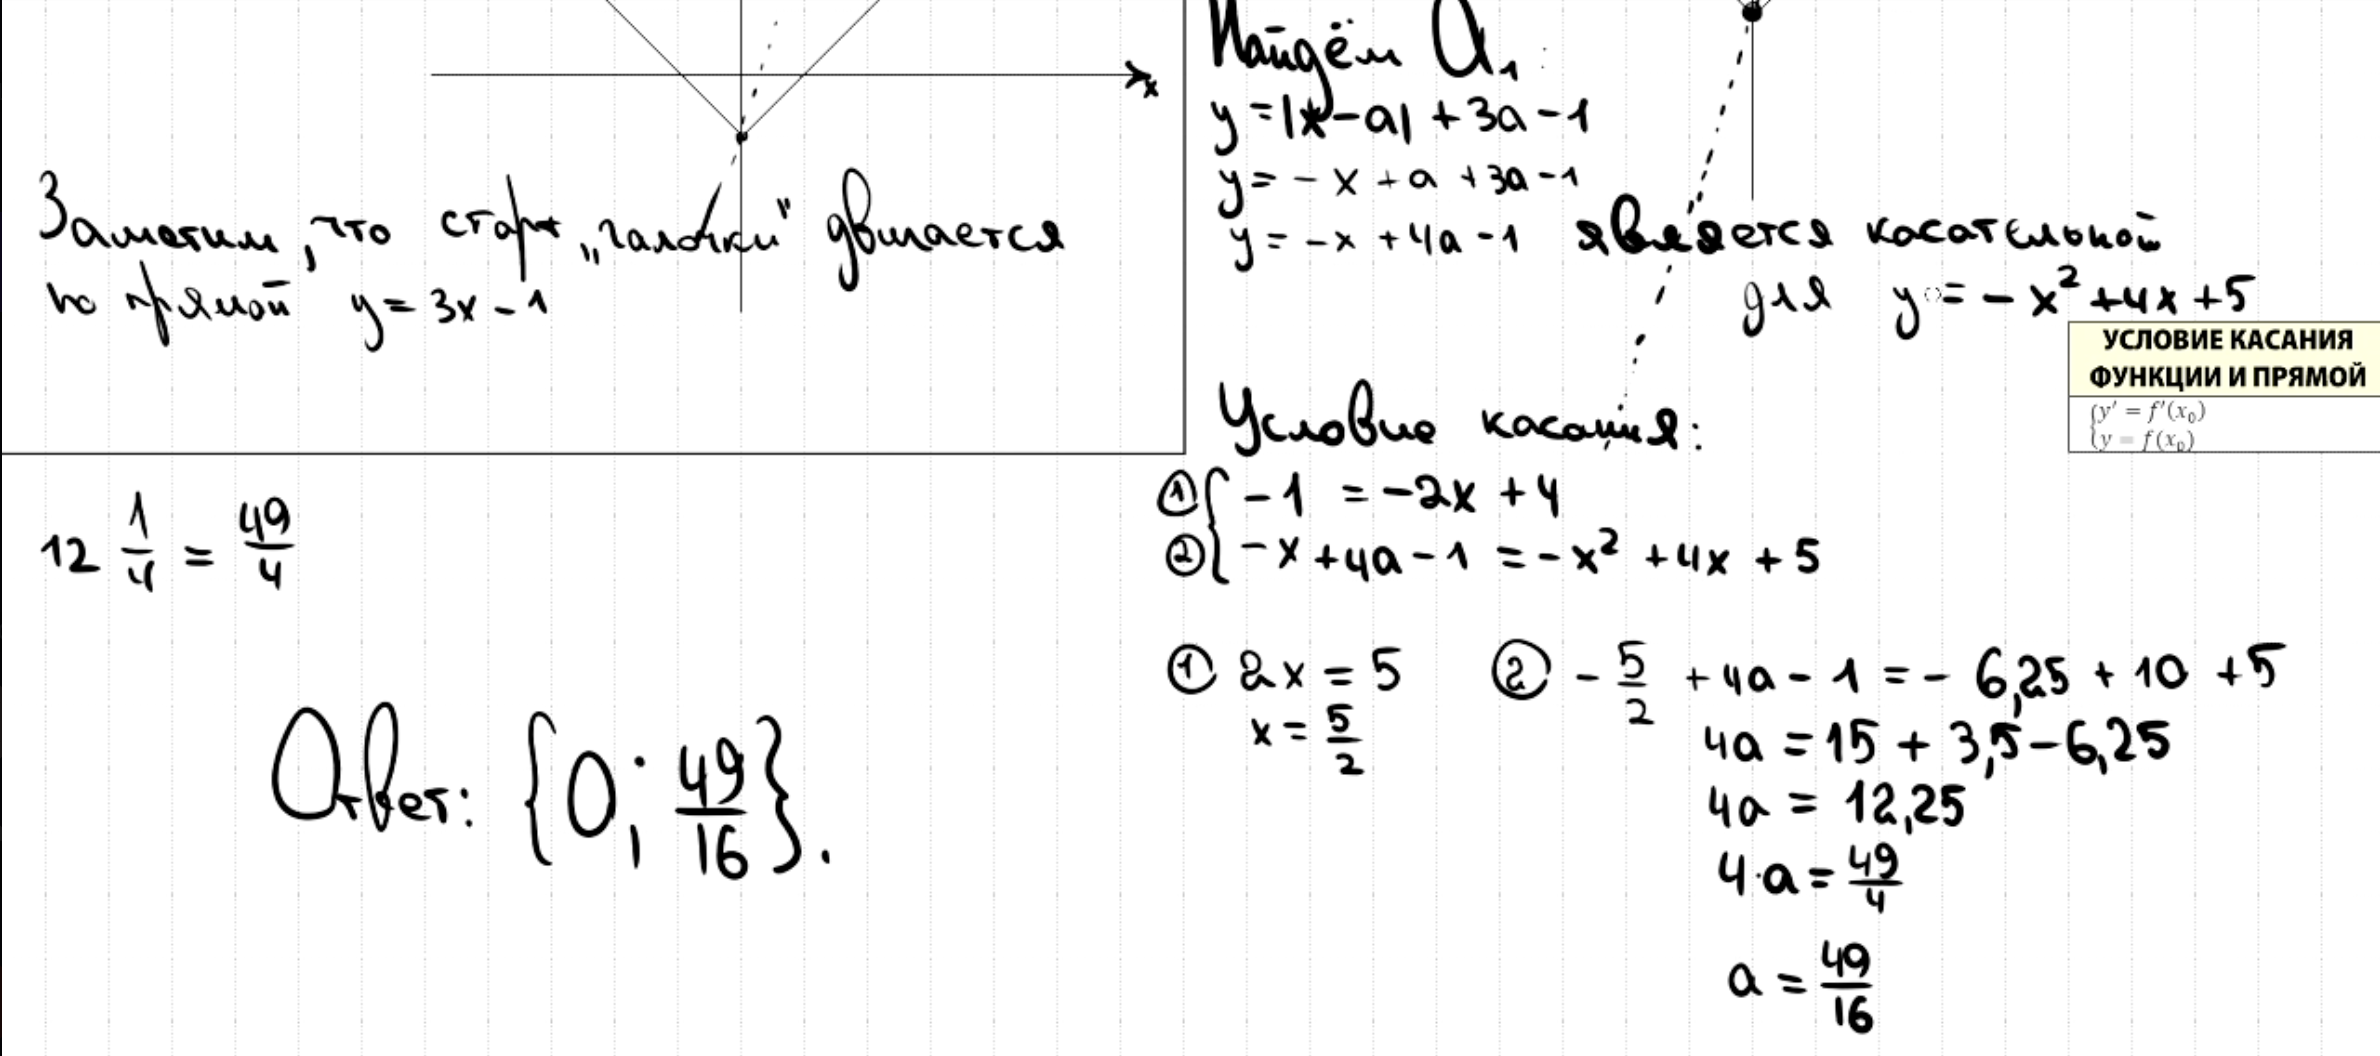 x
Заметим, что старт „галочки" двигается
по прямой y = 3x - 1
12 1/4 = 49/4
Ответ: {0; 49/16}.
Найдём a₁:
y = |x - a| + 3a - 1
y = - x + a + 3a - 1
y = - x + 4a - 1 является касательной
для y = - x² + 4x + 5
УСЛОВИЕ КАСАНИЯ
ФУНКЦИИ И ПРЯМОЙ
{y' = f'(x₀)
{y = f(x₀)
Условие касания:
① { -1 = -2x + 4
② { -x + 4a - 1 = -x² + 4x + 5
① 2x = 5
x = 5/2
② - 5/2 + 4a - 1 = - 6,25 + 10 + 5
4a = 15 + 3,5 - 6,25
4a = 12,25
4·a = 49/4
a = 49/16